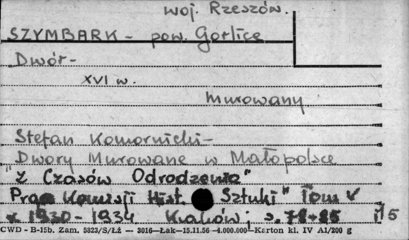 woj. Rzeszów.
SZYMBARK - pow. Gorlice
Dwór -
XVI w.
murowany
Stefan Komornicki -
Dwory Murowane w Małopolsce
"Z Czasów Odrodzenia"
Prace Komisji Hist. Sztuki" Tom V
z 1930-1934 Kraków; s. 78-85
CWD - B-15b. Zam. 5823/S/Łż — 3016—Łak—15.11.56 -4.000.000 -Karton kl. IV A1/200 g